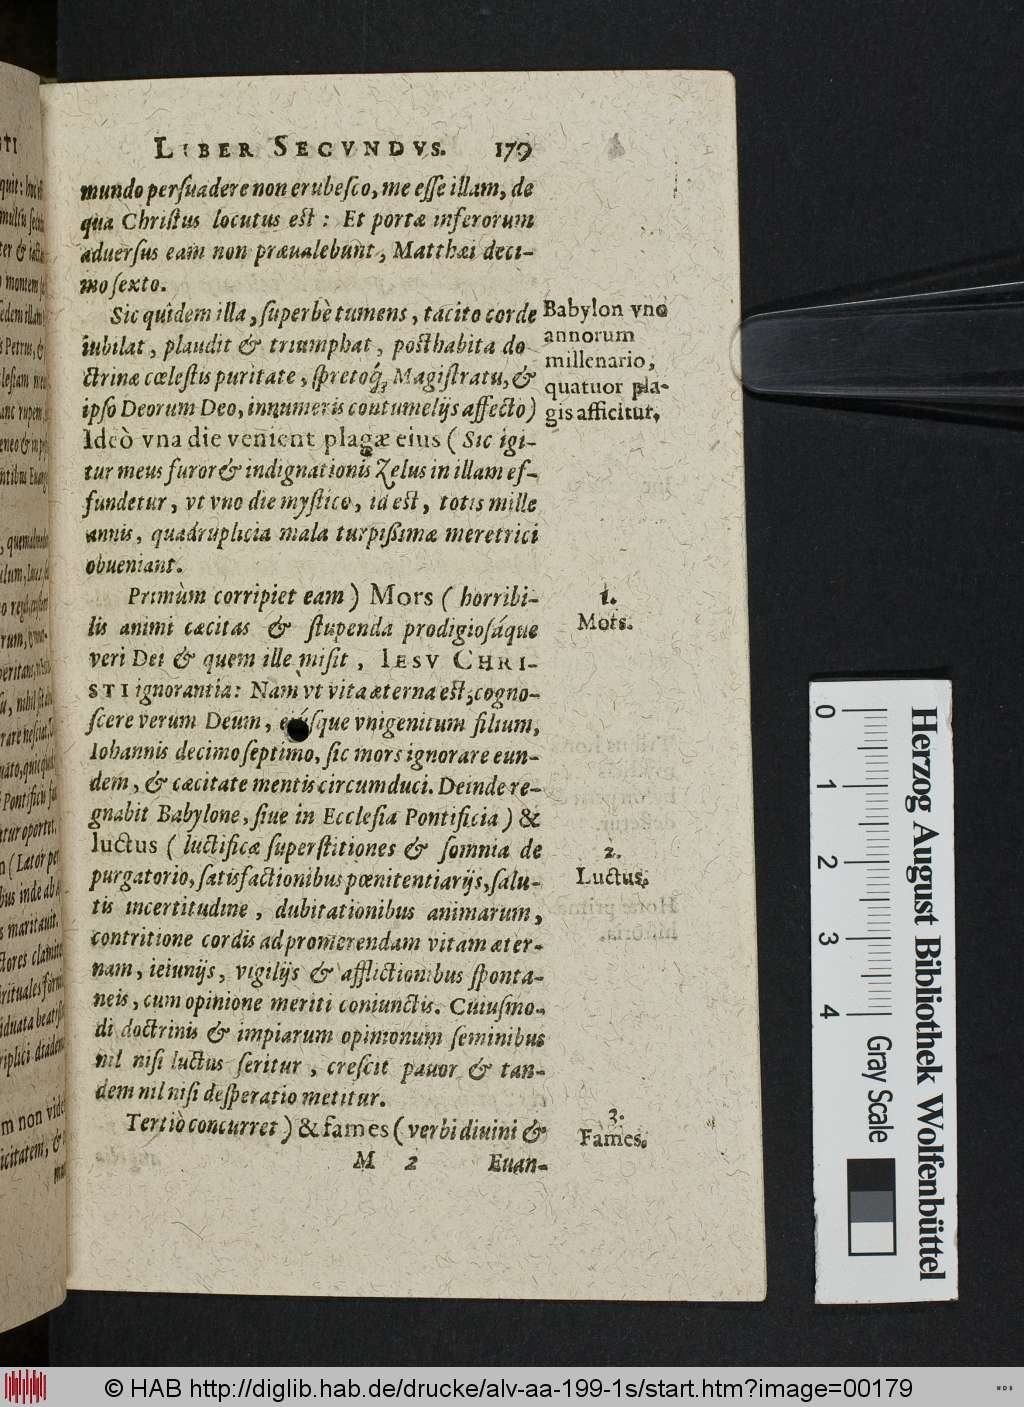 LIBER SECVNDVS. 179
mundo persuadere non erubesco, me esse illam, de
qua Christus locutus est: Et portæ inferorum
aduersus eam non præualebunt, Matthæi deci-
mo sexto.
Sic quidem illa, superbè tumens, tacito corde
iubilat, plaudit & triumphat, posthabita do
ctrinæ cœlestis puritate, spretoq́; Magistratu, &
ipso Deorum Deo, innumeris contumelijs affecto)
Ideò vna die venient plagæ eius (Sic igi-
tur meus furor & indignationis Zelus in illam ef-
fundetur, vt vno die mystico, id est, totis mille
annis, quadruplicia mala turpißimæ meretrici
obueniant.
Babylon vno
annorum
millenario,
quatuor pla-
gis afficitur.
Primùm corripiet eam) Mors (horribi-
lis animi cæcitas & stupenda prodigiosáque
veri Dei & quem ille misit, IESV CHRI-
STI ignorantia: Nam vt vita æterna est, cogno-
scere verum Deum, eiúsque vnigenitum filium,
Iohannis decimo septimo, sic mors ignorare eun-
dem, & cæcitate mentis circumduci. Deinde re-
gnabit Babylone, siue in Ecclesia Pontificia) &
luctus (luctificæ superstitiones & somnia de
purgatorio, satisfactionibus pœnitentiarijs, salu-
tis incertitudine, dubitationibus animarum,
contritione cordis ad promerendam vitam æter-
nam, ieiunijs, vigilijs & afflictionibus sponta-
neis, cum opinione meriti coniunctis. Cuiusmo-
di doctrinis & impiarum opinionum seminibus
nil nisi luctus seritur, crescit pauor & tan-
dem nil nisi desperatio metitur.
1.
Mors.
2.
Luctus.
Tertiò concurret) & fames (verbi diuini &
3.
Fames.
M 2 Euan-
0 1 2 3 4
Herzog August Bibliothek Wolfenbüttel
Gray Scale
© HAB http://diglib.hab.de/drucke/alv-aa-199-1s/start.htm?image=00179